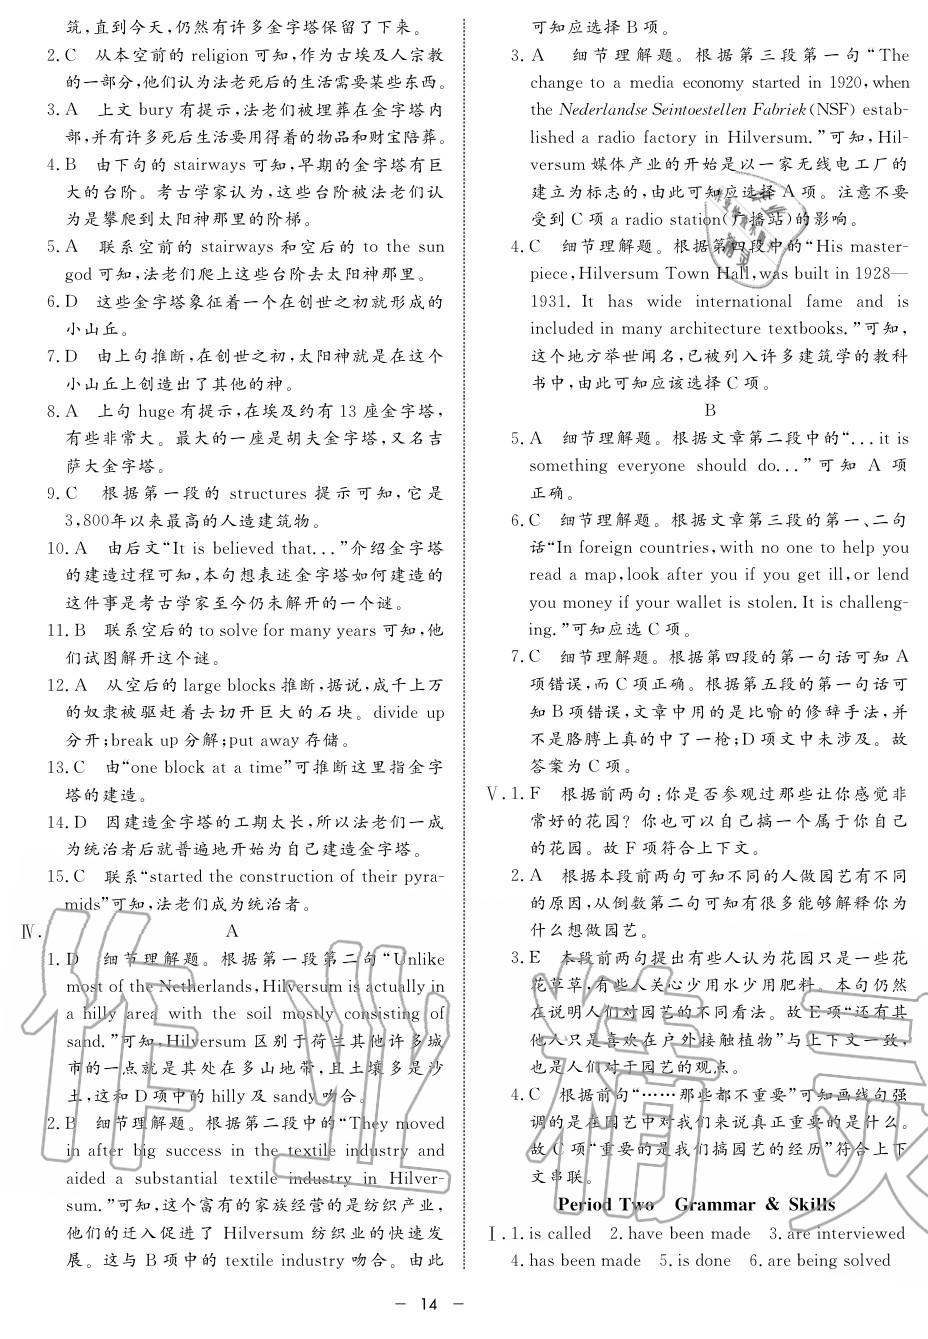 筑,直到今天,仍然有许多金字塔保留了下来。
2. C 从本空前的 religion 可知,作为古埃及人宗教
的一部分,他们认为法老死后的生活需要某些东西。
3. A 上文 bury 有提示,法老们被埋葬在金字塔内
部,并有许多死后生活要用得着的物品和财宝陪葬。
4. B 由下句的 stairways 可知,早期的金字塔有巨
大的台阶。考古学家认为,这些台阶被法老们认
为是攀爬到太阳神那里的阶梯。
5. A 联系空前的 stairways 和空后的 to the sun
god 可知,法老们爬上这些台阶去太阳神那里。
6. D 这些金字塔象征着一个在创世之初就形成的
小山丘。
7. D 由上句推断,在创世之初,太阳神就是在这个
小山丘上创造出了其他的神。
8. A 上句 huge 有提示,在埃及约有 13 座金字塔,
有些非常大。最大的一座是胡夫金字塔,又名吉
萨大金字塔。
9. C 根据第一段的 structures 提示可知,它是
3,800年以来最高的人造建筑物。
10. A 由后文“It is believed that...”介绍金字塔
的建造过程可知,本句想表述金字塔如何建造的
这件事是考古学家至今仍未解开的一个谜。
11. B 联系空后的 to solve for many years 可知,他
们试图解开这个谜。
12. A 从空后的 large blocks 推断,据说,成千上万
的奴隶被驱赶着去切开巨大的石块。divide up
分开;break up 分解;put away 存储。
13. C 由“one block at a time”可推断这里指金字
塔的建造。
14. D 因建造金字塔的工期太长,所以法老们一成
为统治者后就普遍地开始为自己建造金字塔。
15. C 联系“started the construction of their pyra-
mids”可知,法老们成为统治者。
Ⅳ. A
1. D 细节理解题。根据第一段第二句“Unlike
most of the Netherlands, Hilversum is actually in
a hilly area with the soil mostly consisting of
sand.”可知,Hilversum 区别于荷兰其他许多城
市的一点就是其处在多山地带,且土壤多是沙
土,这和 D 项中的 hilly 及 sandy 吻合。
2. B 细节理解题。根据第二段中的“They moved
in after big success in the textile industry and
aided a substantial textile industry in Hilver-
sum.”可知,这个富有的家族经营的是纺织产业,
他们的迁入促进了 Hilversum 纺织业的快速发
展。这与 B 项中的 textile industry 吻合。由此
可知应选择 B 项。
3. A 细节理解题。根据第三段第一句“The
change to a media economy started in 1920, when
the Nederlandse Seintoestellen Fabriek(NSF) estab-
lished a radio factory in Hilversum.”可知,Hil-
versum 媒体产业的开始是以一家无线电工厂的
建立为标志的,由此可知应选择 A 项。注意不要
受到 C 项 a radio station(广播站)的影响。
4. C 细节理解题。根据第四段中的“His master-
piece, Hilversum Town Hall, was built in 1928—
1931. It has wide international fame and is
included in many architecture textbooks.”可知,
这个地方举世闻名,已被列入许多建筑学的教科
书中,由此可知应该选择 C 项。
B
5. A 细节理解题。根据文章第二段中的“...it is
something everyone should do...”可知 A 项
正确。
6. C 细节理解题。根据文章第三段的第一、二句
话“In foreign countries, with no one to help you
read a map, look after you if you get ill, or lend
you money if your wallet is stolen. It is challeng-
ing.”可知应选 C 项。
7. C 细节理解题。根据第四段的第一句话可知 A
项错误,而 C 项正确。根据第五段的第一句话可
知 B 项错误,文章中用的是比喻的修辞手法,并
不是胳膊上真的中了一枪;D 项文中未涉及。故
答案为 C 项。
Ⅴ. 1. F 根据前两句:你是否参观过那些让你感觉非
常好的花园?你也可以自己搞一个属于你自己
的花园。故 F 项符合上下文。
2. A 根据本段前两句可知不同的人做园艺有不同
的原因,从倒数第二句可知有很多能够解释你为
什么想做园艺。
3. E 本段前两句提出有些人认为花园只是一些花
花草草,有些人关心少用水少用肥料。本句仍然
在说明人们对园艺的不同看法。故 E 项“还有其
他人只是喜欢在户外接触植物”与上下文一致,
也是人们对于园艺的观点。
4. C 根据前句“……那些都不重要”可知画线句强
调的是在园艺中对我们来说真正重要的是什么。
故 C 项“重要的是我们搞园艺的经历”符合上下
文串联。
Period Two Grammar & Skills
Ⅰ. 1. is called 2. have been made 3. are interviewed
4. has been made 5. is done 6. are being solved
— 14 —
作业精灵